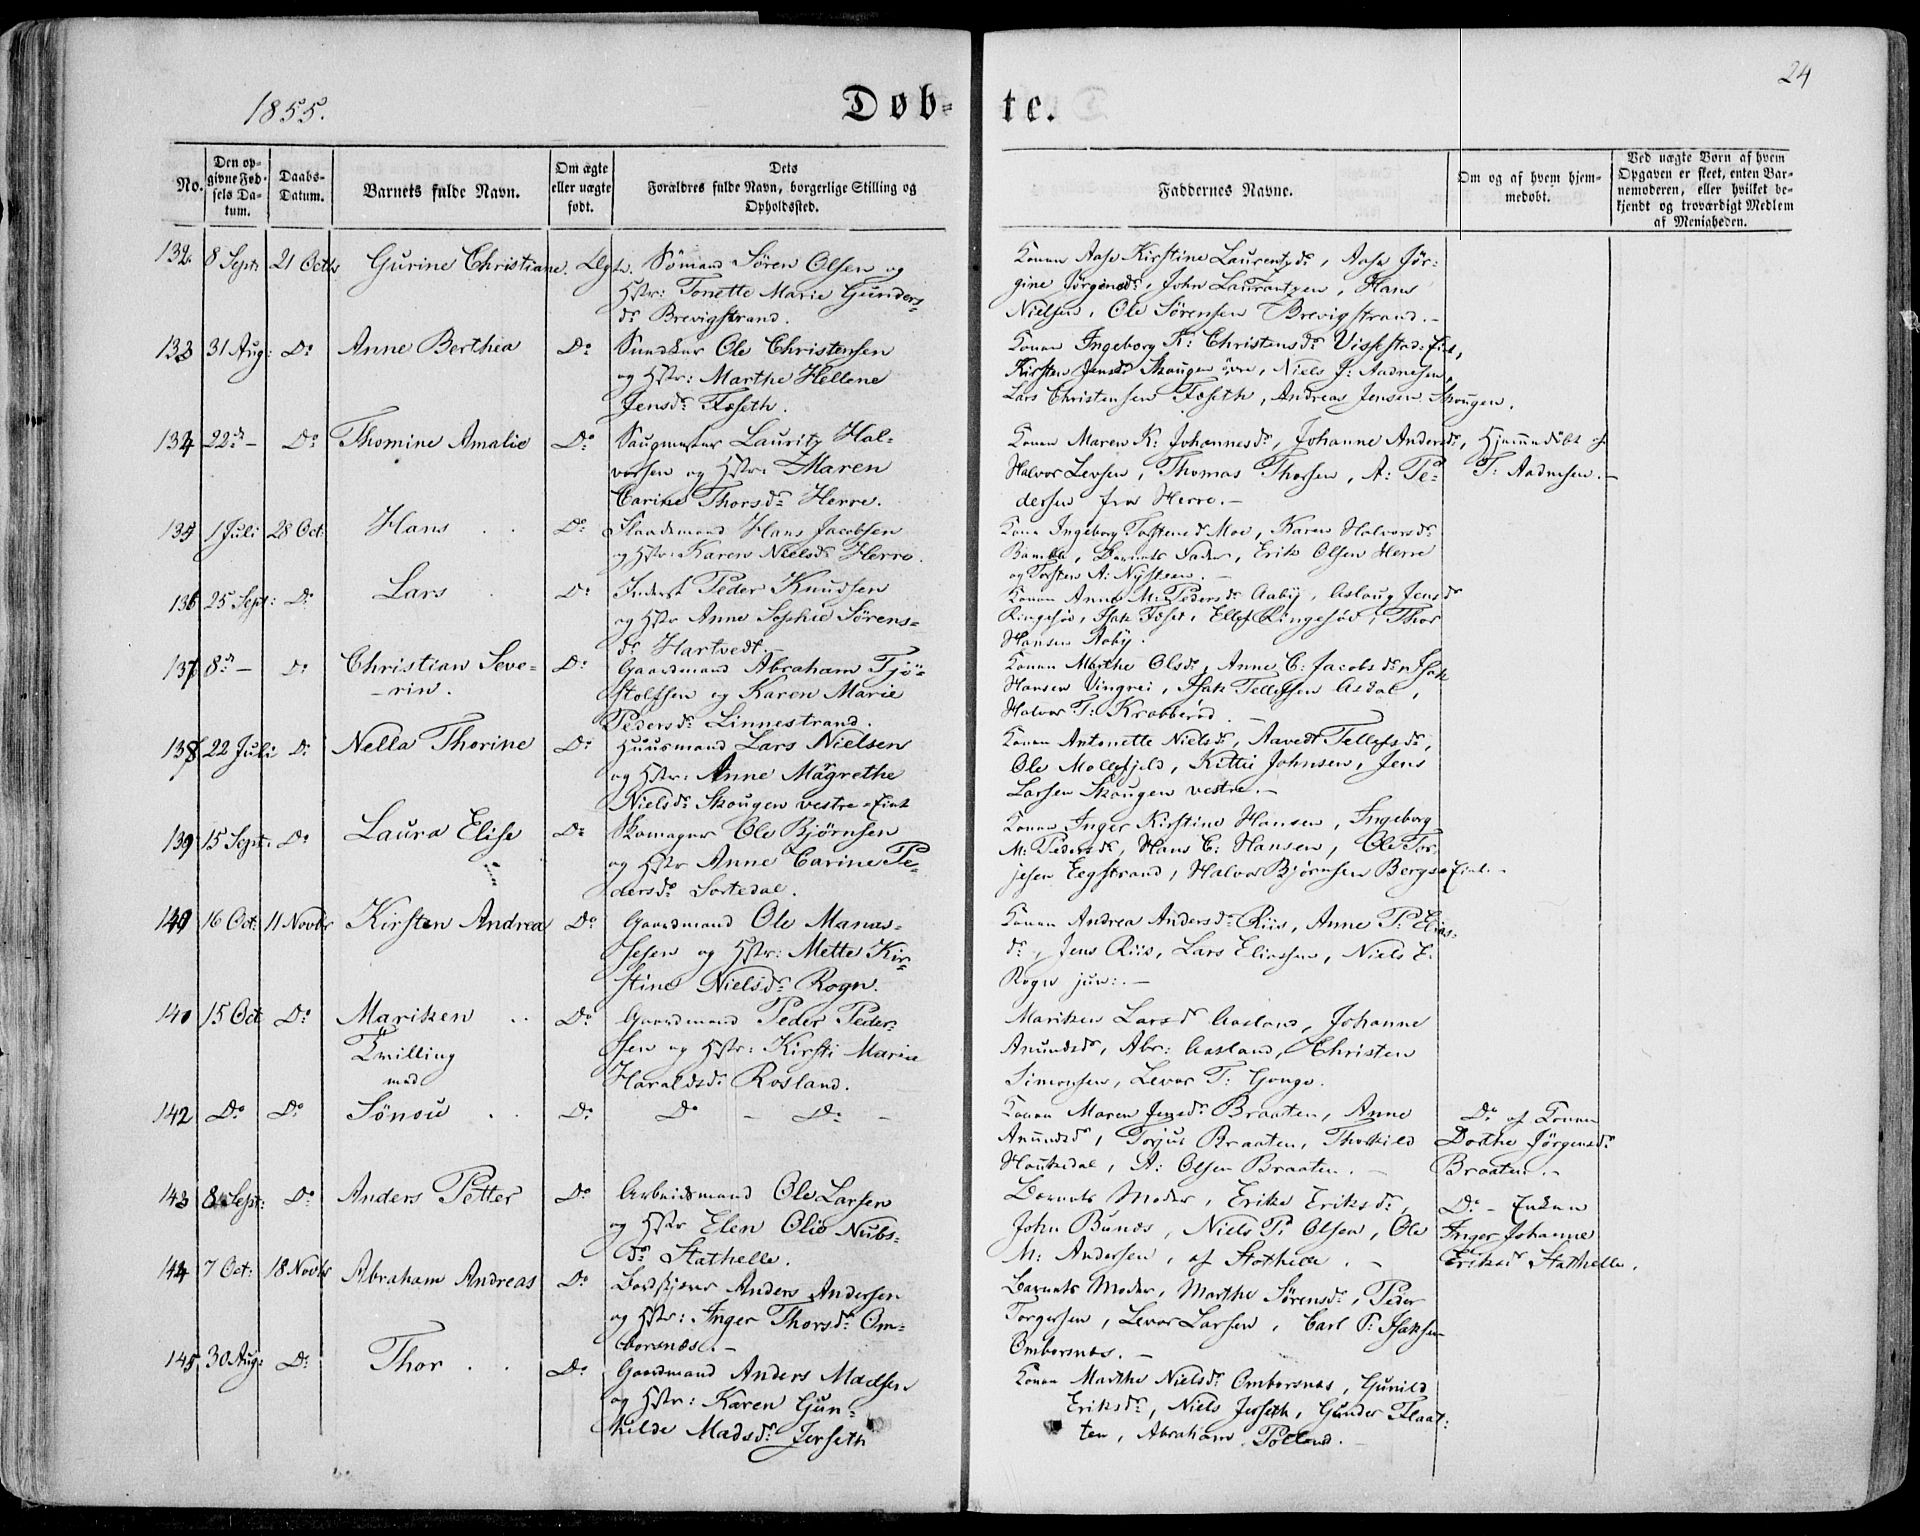 24
1855.
Døb-
te.
No.
Den op-
givne Fød-
sels Da-
tum.
Daabs-
Datum.
Barnets fulde Navn.
Om ægte
eller uægte
født.
Dets
Forældres fulde Navn, borgerlige Stilling og
Opholdssted.
Faddernes Navne.
Om og af hvem hjem-
medøbt.
Ved uægte Børn af hvem
Opgaven er skeet, enten Bar-
nemoderen, eller hvilket be-
kjendt og troværdigt Medlem
af Menigheden.
132. 8 Sept: 21 Octbr Gurine Christiane. Ægte. Sömand Sören Olsen og
Hstr: Tonette Marie Gunders-
dr Brevigstrand.
Konen Aase Kirstine Laurentzdr, Aase Jör-
gine Jørgensdr, John Laurantzen, Hans
Nielsen, Ole Sörensen Brevigstrand.-
133 31 Aug: Do Anne Berthea Do Ole Christensen
og Hstr: Marthe Hellene
Jensdr Fosseth.
Konen Ingeborg K: Christensdr Vissestad Eiet,
Kirsten Jensdr Skougen övre, Niels J: Aadnesen,
Lars Christensen Fosseth, Andreas Jensen Skougen.
134 22de - Do Thomine Amalie Do Saugmester Lauritz Hal-
vorsen og Hstr: Maren
Carine Thorsdr Herre.
Konen Maren K: Johannesdr, Johanne Andersdr,
Halvor Levsen, Thomas Thorsen, A: Pe-
dersen fra Herre.-
Hjemmedöbt af
T: Aadnesen.-
135 1 Juli 28 Oct: Hans Do Hans Jacobsen
og Hstr: Karen Nielsdr Herre.
Kone Ingeborg Torstensdr Moe, Karen Halvorsdr
Bamble, Barnets Fader, Erik Olsen Herre
og Torsten A: Nysteen.-
136 25 Sept: Do Lars Do Inderst Peder Knudsen
og Hstr Anne Sophie Sörens-
dr Hartvedt.
Konen Anne M: Pedersdr Aaby, Aslaug Jensdr
Ringesöd, Isak Foset, Ellef Ringesöd, Thor
Hansen Aaby.
137 8de - Do Christian Seve-
-rin. Do Gaardmand Abraham Tjö-
stolfsen og Karen Marie
Pedersdr Linnestrand.
Konen Marthe Olsdr, Anne C: Jacobsdr, Isak
Hansen Vingrei, Isak Tellefsen Asdal,
Halvor T: Krabberöd.
138 22 Juli Do Nella Thorine Do Huusmand Lars Nielsen
og Hstr: Anne Magrethe
Nielsdr Skougen vestre Eiet
Konen Antonette Nielsdr, Aavedt Tellefsdr,
Ole Mollefjeld, Kittil Johnsen, Jens
Larsen Skougen vestre.-
139 15 Sept: Do Laura Elise Do Skomager Ole Björnsen
og Hstr Anne Carine Pe-
dersdr Sortedal.
Konen Inger Kirstine Hansen, Ingeborg
M: Pedersdr, Hans C: Hansen, Ole Tor-
jesen Eegstrand, Halvor Björnsen Bergs Eiet.-
16 Oct: 11 Novbr Kirsten Andrea Do Gaardmand Ole Manas-
sesen og Hstr: Mette Kir-
stine Nielsdr Rogn.
Konen Andrea Andersdr Riis, Anne P: Elias-
dr, Jens Riis, Lars Eliassen, Niels E.
Rogn jun:.-
15 Oct Do Mariken
Tvilling
med
Do Gaardmand Peder Peder-
sen og Hstr: Kirsti Maria
Haraldsdr Rosland.
Mariken Larsdr Aasland, Johanne
Anundsdr, Abr: Aasland, Christen
Simonsen, Levor T: Gonge.
142 Do Do Sönou Do Do - Do -
Konen Maren Jensdr Braaten, Anne
Anundsdr, Torjus Braaten, Thorkild
Haukedal, A: Olsen Braaten.-
Do af Konen
Dorthe Jörgensdr
Braaten.-
143 8 Sept: Do Anders Petter Do Arbeidsmand Ole Larsen
og Hstr Elen Olie Nubs-
dr Stathelle.
Barnets Moder, Erike Eriksdr,
John Bunæs, Niels P. Olsen, Ole
M: Andersen, af Stathelle.-
Do - Enken
Inger Johanne
Eriksdr Stathelle.
144 7 Oct: 18 Novbr Abraham Andreas Do Anders Andersen
og Hstr: Inger Thorsdr Om-
borsnæs.-
Barnets Moder, Marthe Sörensdr, Peder
Torgersen, Levor Larsen, Carl P: Isaksen
Omborsnæs.-
145 30 Aug: Do Thor Do Gaardmand Anders Madsen
og Hstr: Karen Gun-
hilde Madsdr Jerseth
Konen Marthe Nielsdr Omborsnæs, Gunild
Eriksdr, Niels Jerseth, Gunder Flaat-
ten, Abraham Tolland.-